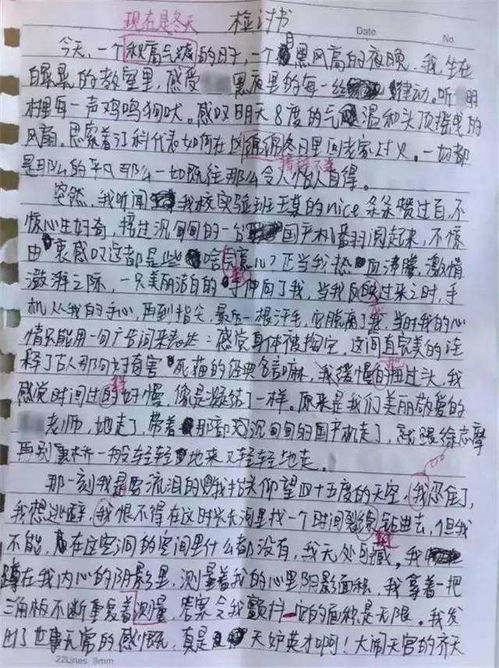 现在是冬天
检讨书
Date No.
今天,一个秋高气爽的日子,一个黑风高的夜晚,我,坐在
的教室里,感受黑夜里的每一丝律动。听
村里每一声鸡鸣狗吠。感叹明天8度的气温和头顶摇曳的
风扇。思索着江科代表如何在冬日里问老家过火。一切都
是那么的平凡那么一如既往那么令人怡人自得。
突然,我听闻我校实验班王某的nice条条赞过百,不
惊心生好奇,摸过沉甸甸的一台国产机翻阅起来,不惊
由衷感叹这都是些啥?正当我热血沸腾,激情
澎湃之际,一只美丽洁白的手伸向了我,当我反映过来之时,手
机从我的手心,再到指尖,最后一根汗毛,它脱离了我,当时我的心
情只能用一句广告词来表达:感觉身体被掏空,这词真完美的诠
释了古人那句好奇害死猫的经典名言嘛,我缓慢的扭过头,我
感觉时间过的好慢,像是凝结了一样。原来是我们美丽敬爱的
老师,她走了,带着那部沉甸甸的国产机走了,就跟徐志摩
再别康桥一般轻轻地来又轻轻地走。
那一刻我是要流泪的我抬头仰望四十五度的天空,我忍住了,
我想逃避,我恨不得在这时光长河里找一个时间裂缝钻进去,但我
不能,在这空洞的空间里什么都没有,我无处可藏。我
蹲在我内心的阴影里,测量着我的心里阴影面积,我拿着一把
三角板不断重复着测量,答案令我颤抖它的面积是无限。我发
出了世事无常的感慨,真是天妒英才啊!大闹天宫的齐天
22Lines 8mm